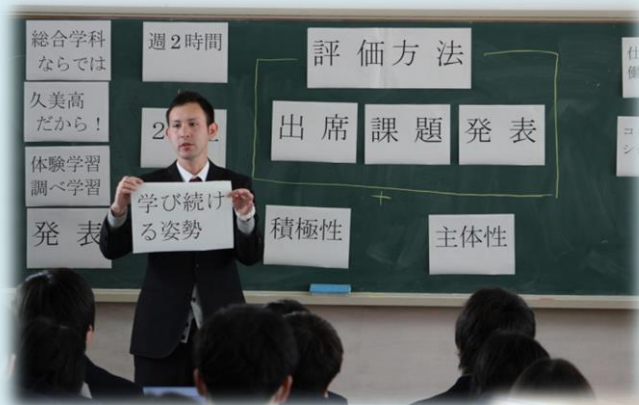 総合学科
ならでは
久美高
だから！
体験学習
調べ学習
発表
週２時間
2
学び続け
る姿勢
評価方法
出席
課題
発表
＋
積極性
主体性